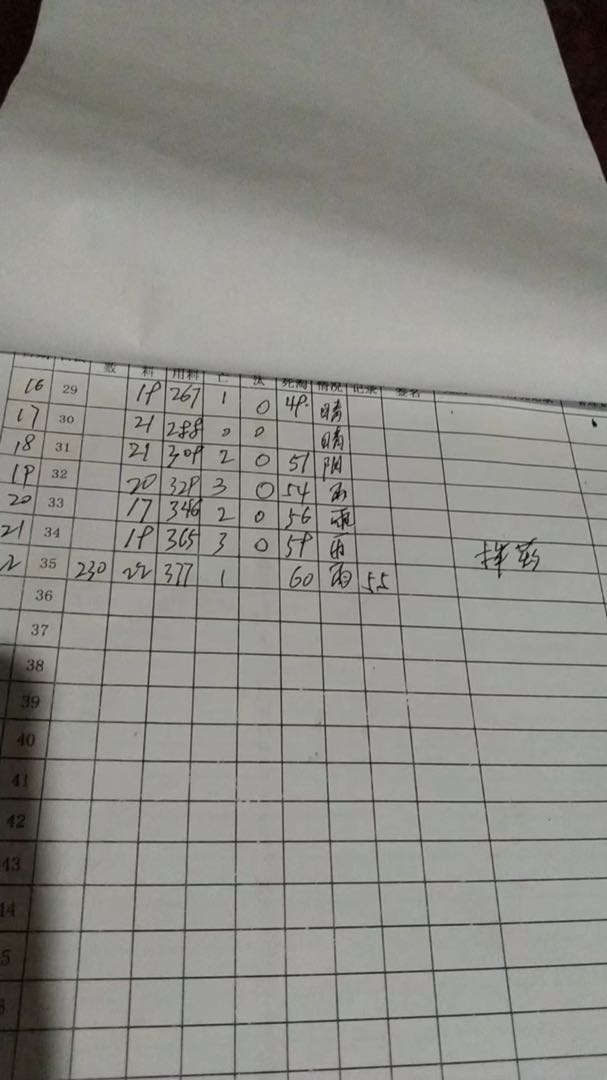 数 料 用料 亡 汰 死淘 情况 记录 签名
16 29 19 267 1 0 49 晴
17 30 21 288 0 0 晴
18 31 21 309 2 0 51 阴
19 32 20 329 3 0 54 雨
20 33 17 346 2 0 56 雨
21 34 19 365 3 0 59 雨
35 230 22 377 1 60 雨 55
36
37
38
39
40
41
42
43